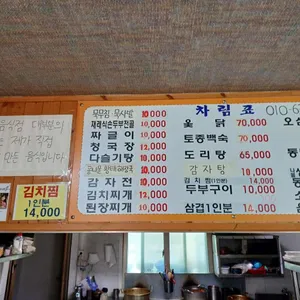 음식점 대부분의
제가 직접
만든 음식입니다
김치찜
1인분
14,000
차림표 010-6
묵무침·묵사발 10000
재래식손두부전골 10,000
짜글이 10,000
청국장 12,000
다슬기탕 10,000
감자전 10,000
김치찌개 12,000
된장찌개 10,000
옻닭 70,000
토종백숙 70,000
도리탕 65,000
감자탕 10,000
김치찜(1인분) 14,000
두부구이 10,000
삼겹1인분 14,000